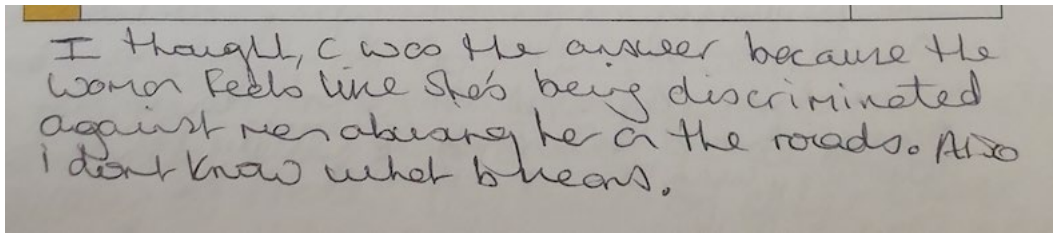 I thought, C was the answer because the
woman feels like she's being discriminated
against men abusing her on the roads. Also
i dont know what b means.